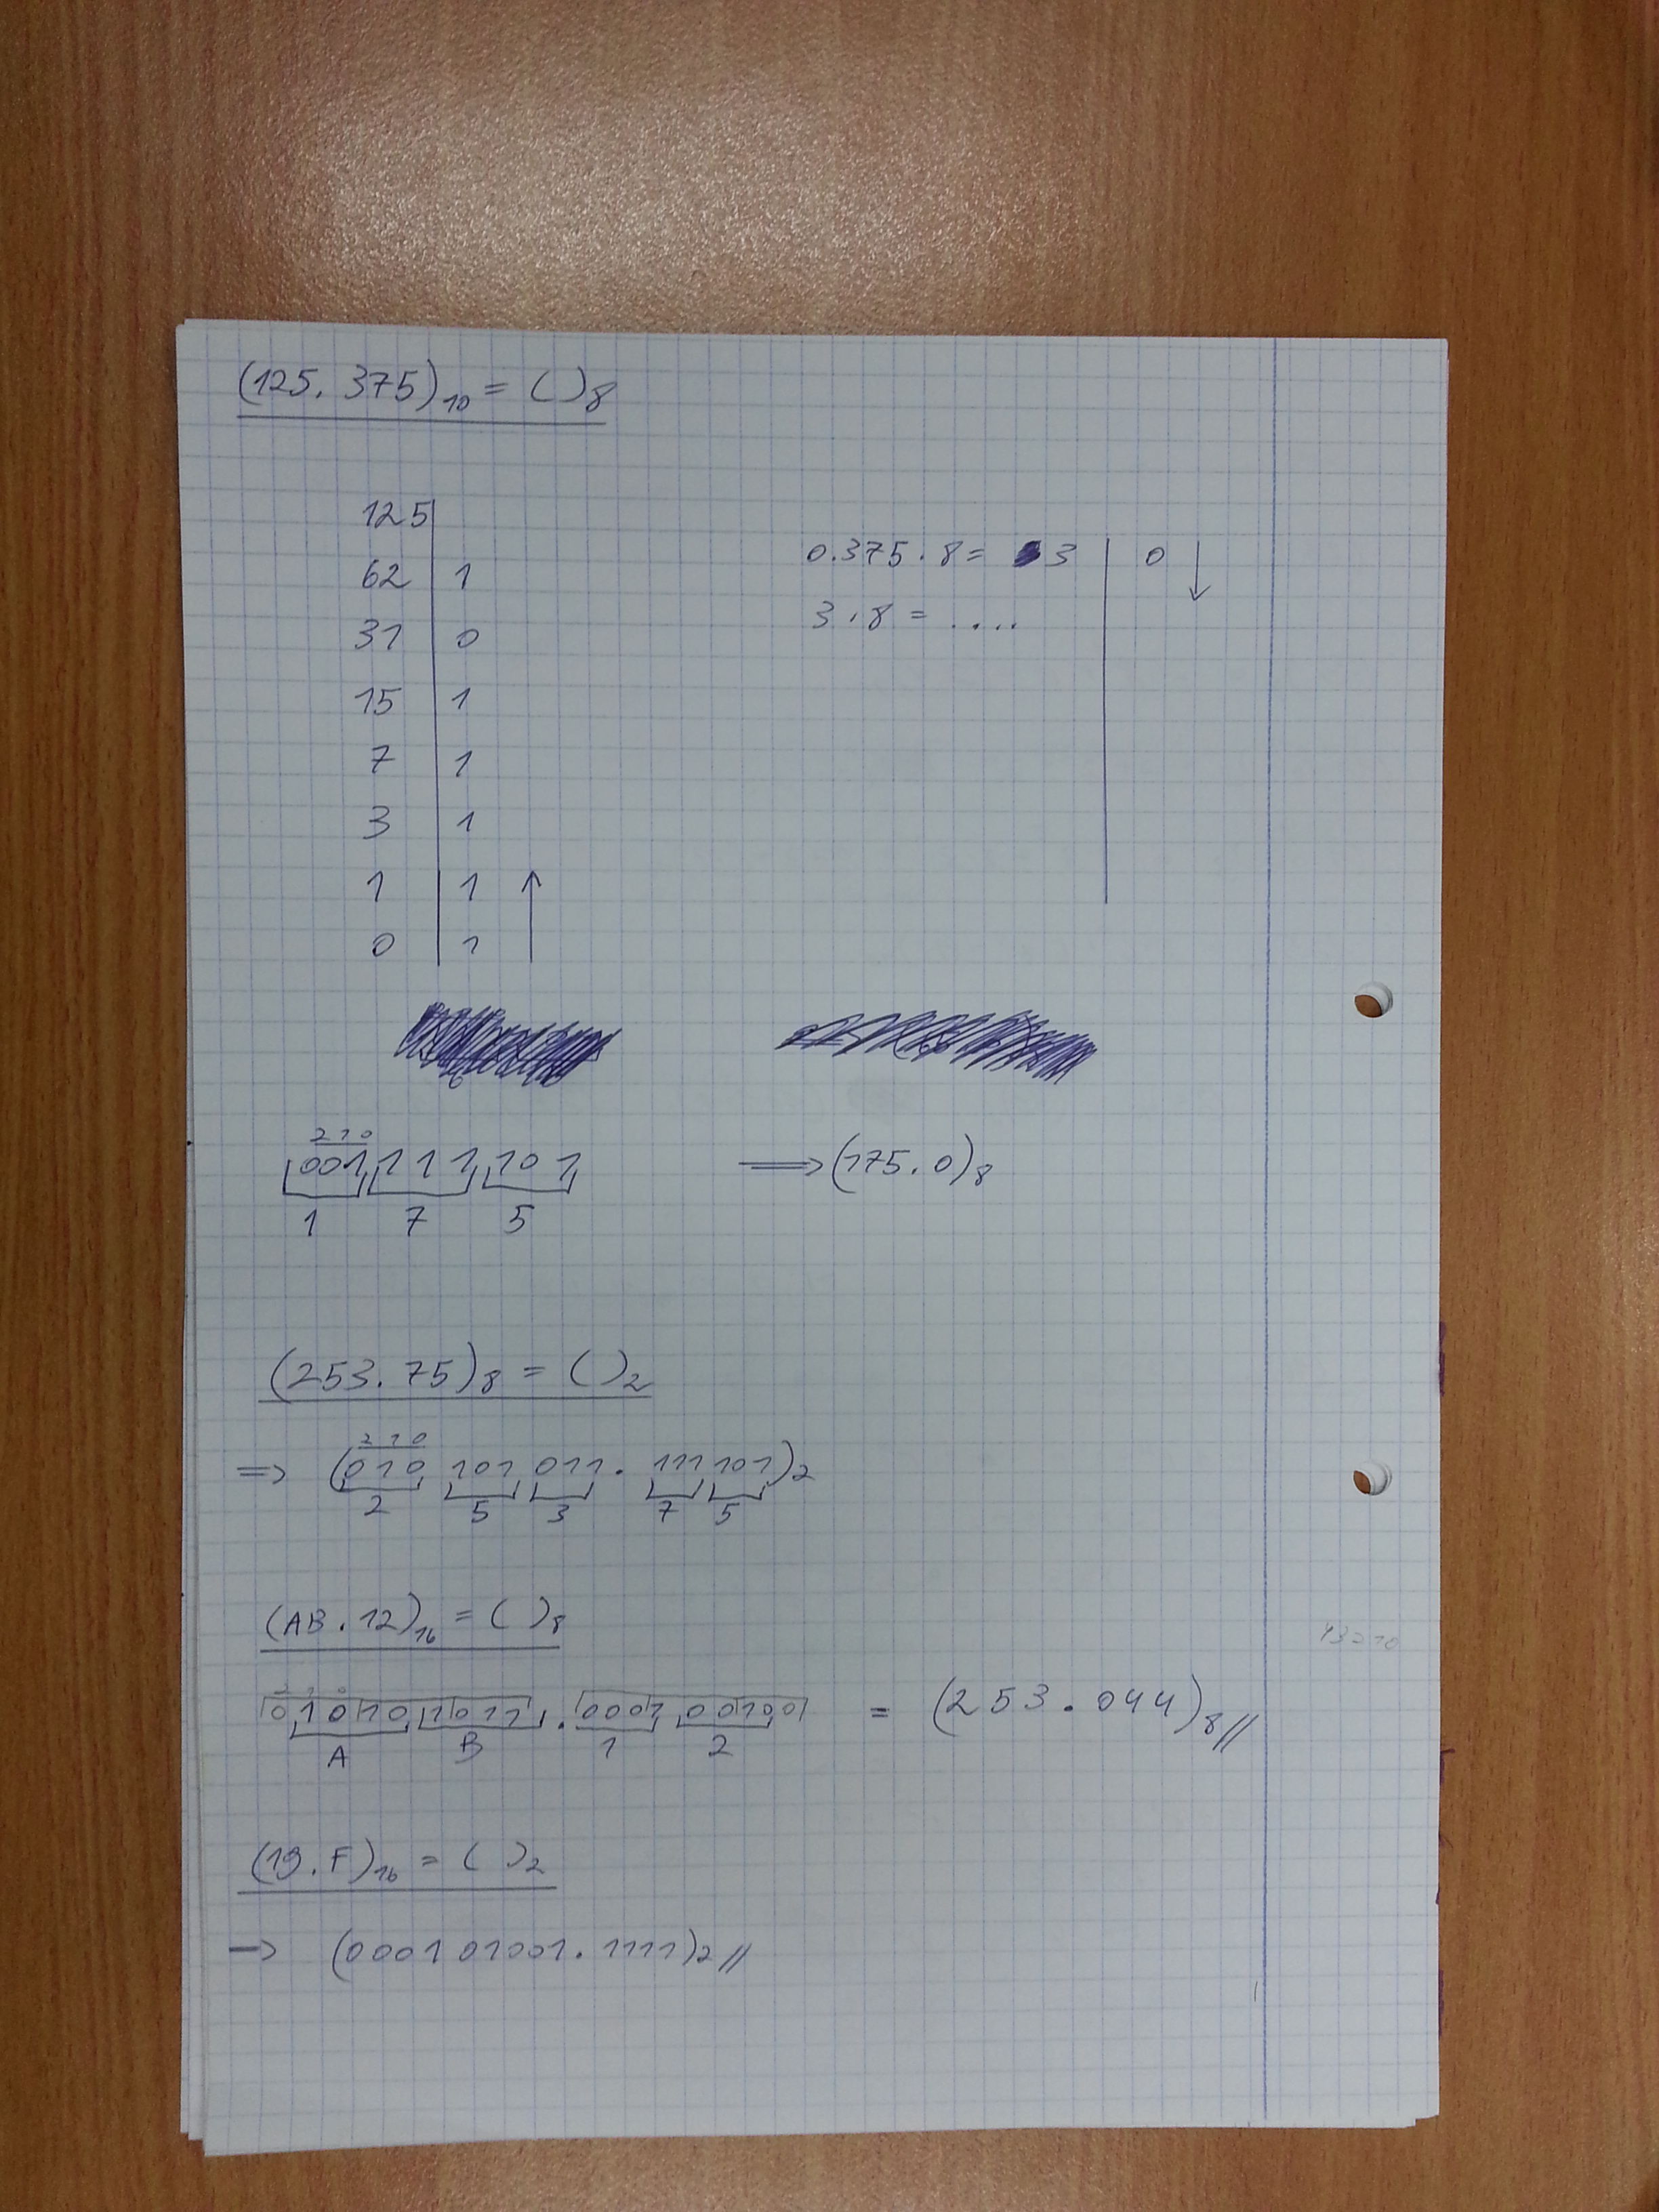 (125.375)₁₀ = ( )₈
125
62 | 1
31 | 0
15 | 1
7 | 1
3 | 1
1 | 1 ↑
0 | 1
0.375 · 8 = 3 | 0 ↓
3 · 8 = ....
2 1 0
001 111 101
1 7 5
⟹ (175.0)₈
(253.75)₈ = ( )₂
2 1 0
⇒ (010 101 011 . 111 101)₂
2 5 3 7 5
(AB.12)₁₆ = ( )₈
0 1010 1011 . 0001 00100 = (253.044)₈//
A B 1 2
(19.F)₁₆ = ( )₂
→ (000101001.1111)₂//